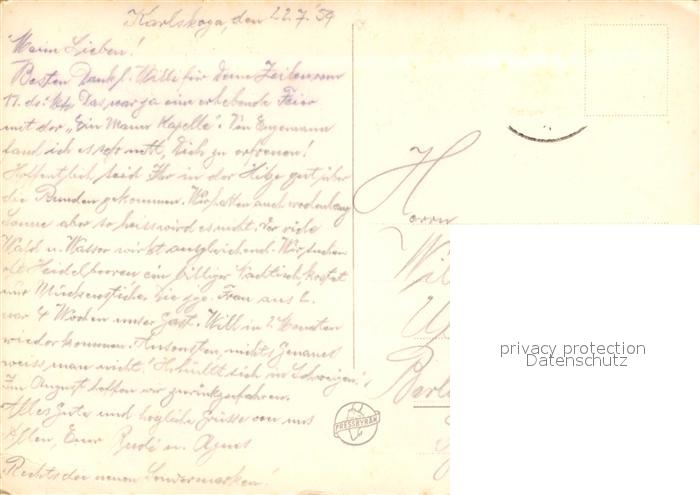 Karlskoga, den 22.7.'59
Meine Lieben!
Besten Dank l. Willi für Deine Zeilen vom
17. ds. Das war ja eine erhebende Feier
mit der „Ein Mann Kapelle". Von Engemann
fand ich es sehr nett, Dich zu erfreuen!
Hoffentlich seid Ihr in der Hitze gut über
die Runden gekommen. Wir hatten auch wochenlang
Sonne aber so heiss wird es nicht. Der viele
Wald u. Wasser wirkt ausgleichend. Wir suchen
oft Heidelbeeren ein billiger Nachtisch, kostet
nur Mückenstiche. Die jge. Frau aus L.
war 4 Wochen unser Gast. Will in 2 Monaten
wiederkommen. Ansonsten, nichts Genaues
weiss man nicht! Er hüllt sich in Schweigen!
Im August hoffen wir zurückzufahren.
Alles Gute und herzliche Grüsse von uns
Allen, Eure Rudi u. Agnes
Rechts die neuen Sondermarken!
Herrn
Wil
Berl
PRESSBYRÅN
privacy protection
Datenschutz